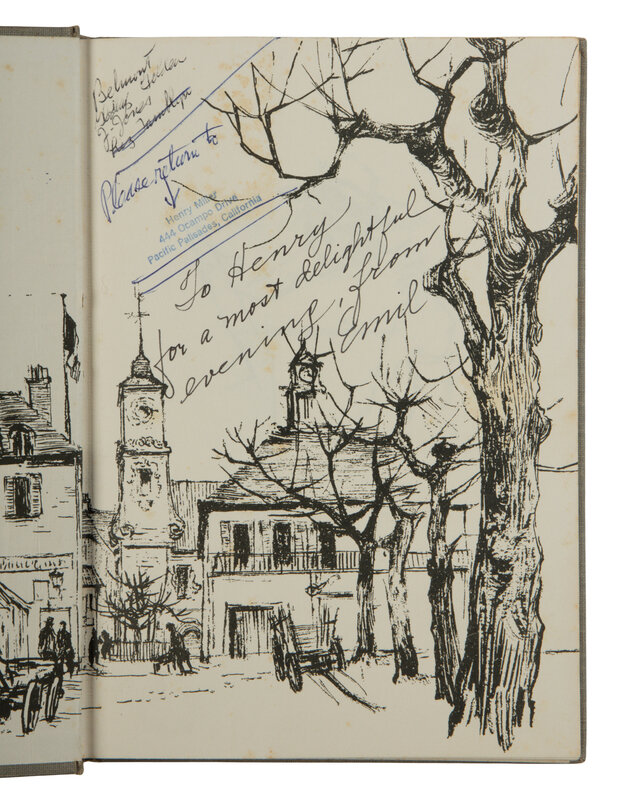 Belmont
Jones
Please return to
Henry Miller
444 Ocampo Drive
Pacific Palisades, California
To Henry
for a most delightful
evening, from
Emil